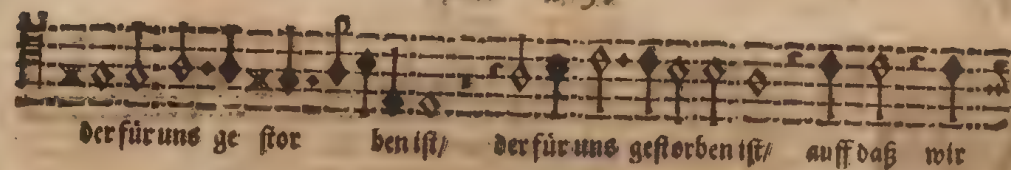 der für uns ge stor ben ist/ der für uns gestorben ist/ auff daß wir